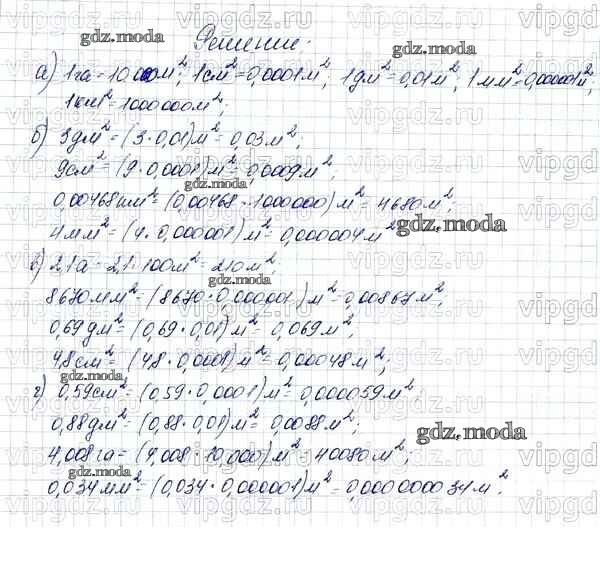 Решение:
а) 1га = 10000м²; 1см² = 0,0001м²; 1дм² = 0,01м²; 1мм² = 0,000001м²;
1км² = 1000000м²;
б) 3дм² = (3·0,01)м² = 0,03м²;
9см² = (9·0,0001)м² = 0,0009м²;
0,00468км² = (0,00468·1000000)м² = 4680м²;
4мм² = (4·0,000001)м² = 0,000004м²
в) 2,1а = 2,1·100м² = 210м²;
8670мм² = (8670·0,000001)м² = 0,00867м²;
0,69дм² = (0,69·0,01)м² = 0,069м²;
4,8см² = (4,8·0,0001)м² = 0,00048м²;
г) 0,59см² = (0,59·0,0001)м² = 0,000059м²;
0,88дм² = (0,88·0,01)м² = 0,0088м²;
4,008га = (4,008·10,000)м² = 40080м²;
0,034мм² = (0,034·0,000001)м² = 0,000000034м².